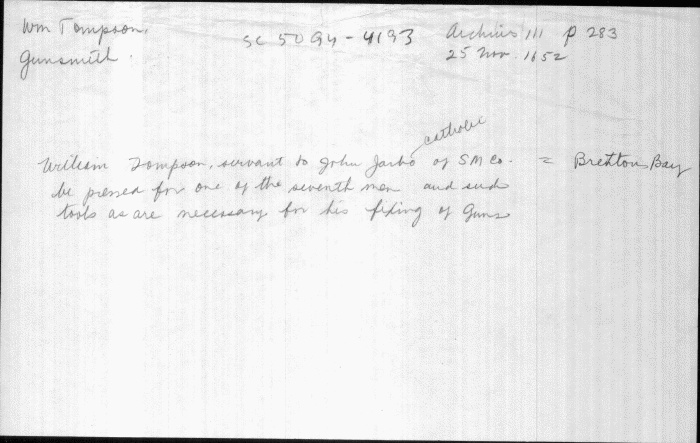 Wm Tompson,
Gunsmith.
SC 5094-4193
Archives III p 283
25 Nov. 1652
catholic
William Tompson, servant to John Jarbo of SM Co. = Bretton Bay
be pressed for one of the seventh men and such
tools as are necessary for his fixing of Guns